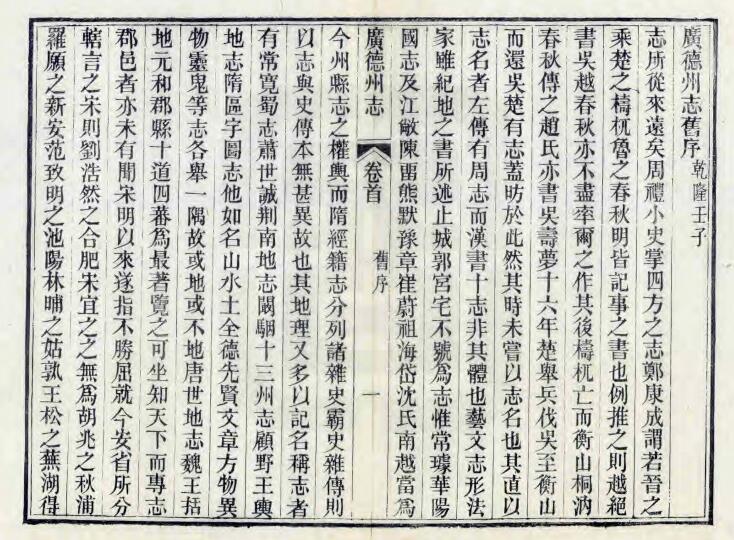 廣德州志舊序 乾隆壬子
志所從來遠矣周禮小史掌四方之志鄭康成謂若晉之
乘楚之檮杌魯之春秋明皆記事之書也例推之則越絕
書吳越春秋亦不盡率爾之作其後檮杌亡而衡山桐汭
春秋傳之趙氏亦書吳壽夢十六年楚舉兵伐吳至衡山
而還吳楚有志蓋昉於此然其時未嘗以志名也其直以
志名者左傳有周志而漢書十志非其體也藝文志形法
家雖紀地之書所述止城郭宮宅不號爲志惟常璩華陽
國志及江敞陳畱熊默豫章崔蔚祖海岱沈氏南越當爲
廣德州志 卷首 舊序 一
今州縣志之權輿而隋經籍志分列諸雜史霸史雜傳則
以志與史傳本無甚異故也其地理又多以記名稱志者
有常寬蜀志蕭世誠荆南地志闞駰十三州志顧野王輿
地志隋區字圖志他如名山水土全德先賢文章方物異
物靈鬼等志各舉一隅故或地或不地唐世地志魏王括
地元和郡縣十道四蕃爲最著覽之可坐知天下而專志
郡邑者亦未有聞宋明以來遂指不勝屈就今安省所分
轄言之宋則劉浩然之合肥宋宜之之無爲胡兆之秋浦
羅願之新安范致明之池陽林㟽之姑孰王松之蕪湖得